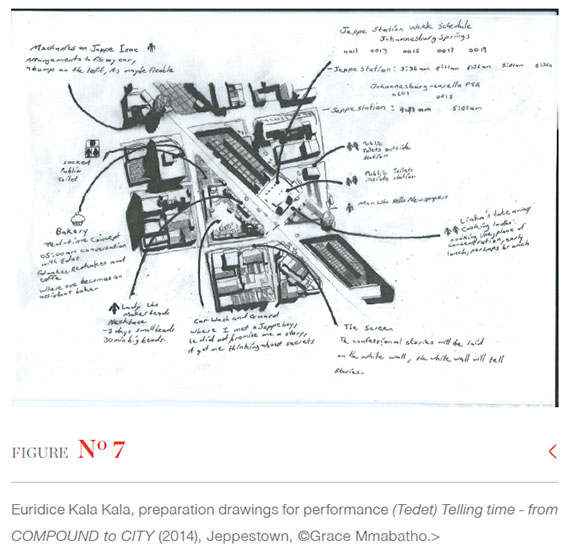 Jeppe Station Week Schedule
Johannesburg Springs
0011 0013 0015 0017 0019
-Jeppe Station: 3:36am 4:11am 4:36am 5:01am
Johannesburg-
0607 0615
Jeppe station: 5:01am
Mechanics on Jeppe
Arrangements to fix my car,
bump on the left, its maybe fixable
Locked
Public
Toilet
Public
Toilets outside
station
Public Toilets
inside station
Man who sells Newspaper
take away
Cooking
cooking place of
concentration, early
lunch, perhaps brunch
Bakery
Real-time concept
05:00am conversation
with
and
coffee
Where one becomes an
assistant baker
Lady who
Makes beads
Necklace
-2 days small beads
30min big beads.
Car Wash and Guard
Where I met a Jeppe boy,
he did not promise me a story,
it got me thinking about secrets
The Screen
The confessional stories will be laid
on the white wall, the white wall will tell
stories.
FIGURE Nº 7
Euridice Kala Kala, preparation drawings for performance (Tedet) Telling time - from
COMPOUND to CITY (2014), Jeppestown, ©Grace Mmabatho.>